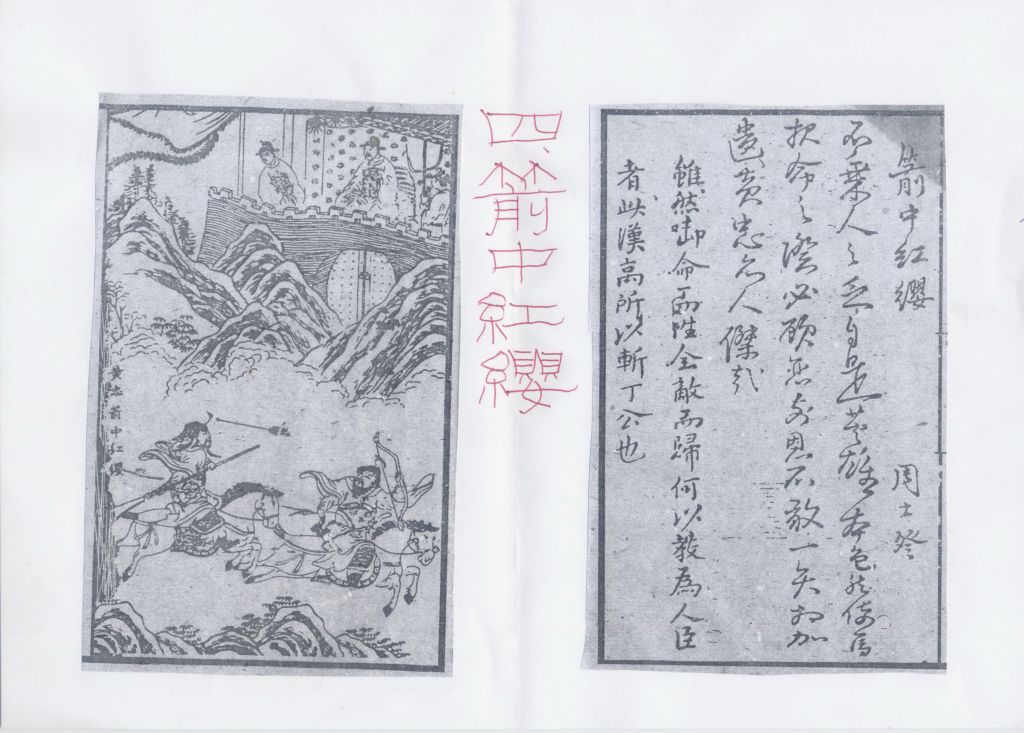 四、箭中紅纓
箭中紅纓 周士登
不乘人之危自是英雄本色然使馬
命之際必顧前恩不敢一矢相加
遺黃忠亦人傑哉
雖然啣命而往全敵而歸何以教為人臣
者此漢高所以斬丁公也
黃忠箭中紅纓